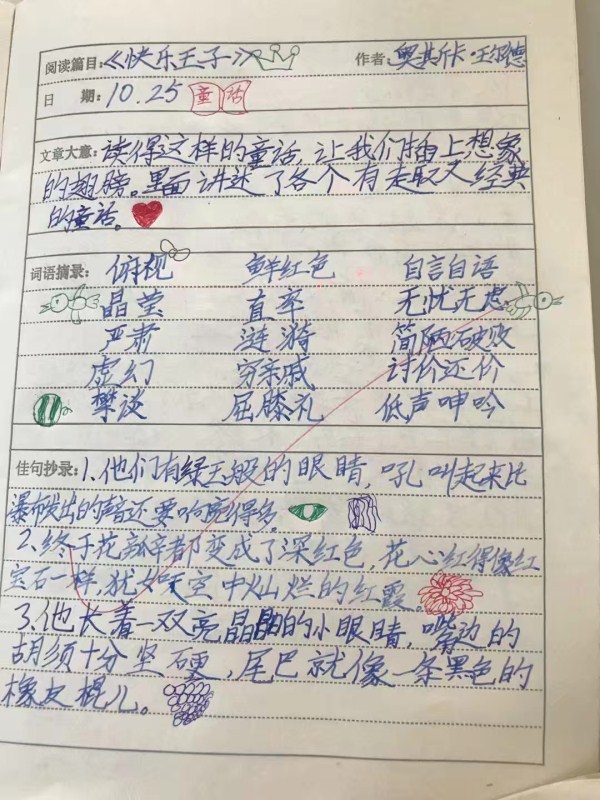 阅读篇目:《快乐王子》 作者:奥斯卡·王尔德
日 期:10.25 童话
文章大意:读得这样的童话,让我们插上想象
的翅膀。里面讲述了各个有趣又经典
的童话。
词语摘录:俯视 鲜红色 自言自语
晶莹 直率 无忧无虑
严肃 涟漪 简陋破败
虚幻 穷亲戚 讨价还价
攀谈 屈膝礼 低声呻吟
佳句抄录:1.他们有绿玉般的眼睛,吼叫起来比
瀑布发出的声音还要响亮得多。
2.终于花瓣都变成了深红色,花心红得像红
宝石一样,犹如天空中灿烂的红霞。
3.他长着一双亮晶晶的小眼睛,嘴边的
胡须十分坚硬,尾巴就像一条黑色的
橡皮棍儿。